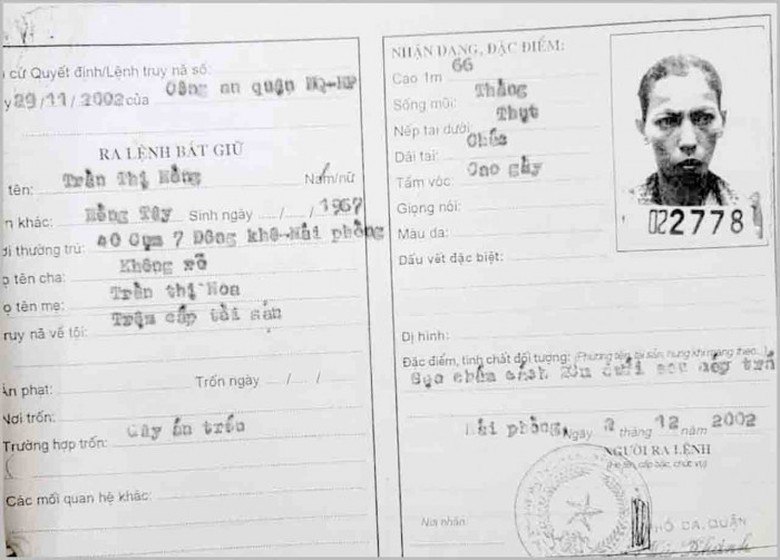 cứ Quyết định/Lệnh truy nã số:
29/11/2002 của Công an quận NQ-HP
RA LỆNH BẮT GIỮ
tên: Trần Thị Hồng Nam/nữ
khác: Hồng Tây Sinh ngày ..../..../1967
thường trú: 40 Cụm 7 Đông khê-Hải phòng
tên cha: Không rõ
tên mẹ: Trần thị Hoa
truy nã về tội: Trộm cắp tài sản
Án phạt: Trốn ngày ..../..../
Nơi trốn:
Trường hợp trốn: Gây án trốn
Các mối quan hệ khác:
NHẬN DẠNG, ĐẶC ĐIỂM:
Cao 1m 66
Sống mũi: Thẳng
Nếp tai dưới: Thụt
Dái tai: Chúc
Tầm vóc: Cao gầy
Giọng nói:
Màu da:
Dấu vết đặc biệt:
022778
Dị hình:
Đặc điểm, tính chất đối tượng: (Phương tiện, tài sản, hung khí mang theo...)
Sẹo chấm cách dưới sau
Hải phòng, Ngày 2 tháng 12 năm 2002
NGƯỜI RA LỆNH
(Họ tên, cấp bậc, chức vụ)
Nơi nhận
CA. QUẬN